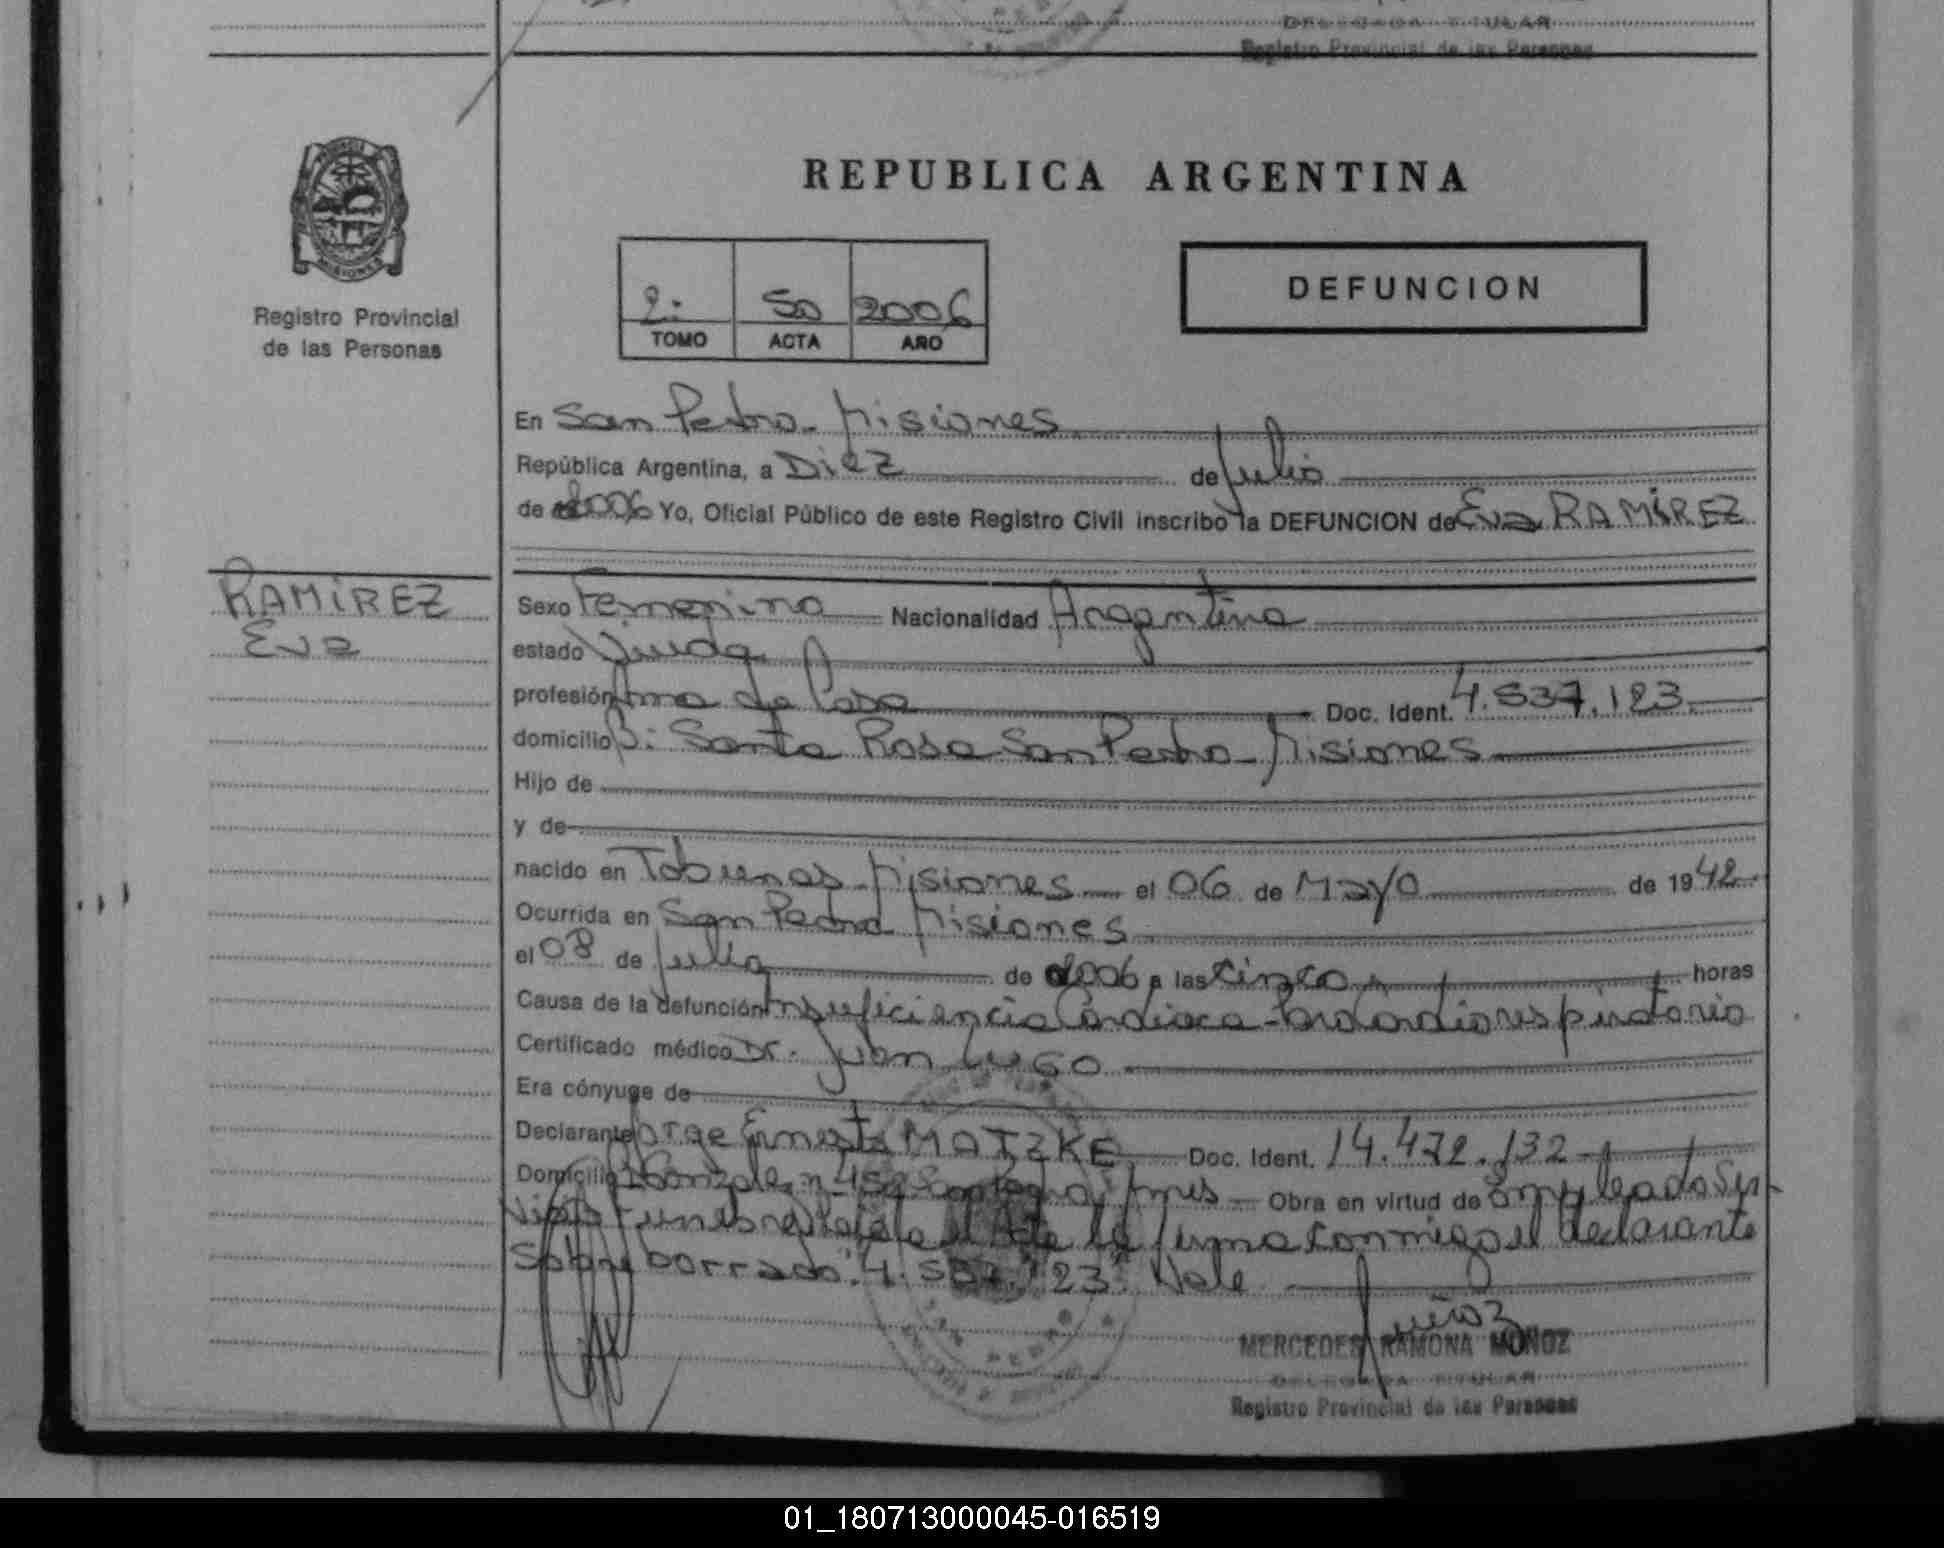 DELEGADA TITULAR
Registro Provincial de las Personas
PROVINCIA
MISIONES
REPUBLICA ARGENTINA
Registro Provincial
de las Personas
2: 50 2006
TOMO ACTA AÑO
DEFUNCION
En San Pedro - Misiones
República Argentina, a Diez de Julio
de 2006 Yo, Oficial Público de este Registro Civil inscribo la DEFUNCION de Eva RAMÍREZ
RAMÍREZ
Eva
Sexo Femenino Nacionalidad Argentina
estado Viuda
profesión Ama de Casa Doc. Ident. 4.537.123.
domicilio B: Santa Rosa San Pedro - Misiones
Hijo de
y de
nacido en Tobunas - Misiones el 06 de Mayo de 1942
Ocurrida en San Pedro Misiones
el 08 de Julio de 2006 a las cinco horas
Causa de la defunción Insuficiencia Cardiaca - Paro Cardiorespiratorio
Certificado médico Dr. Juan LUGO
Era cónyuge de
Declarante Jorge Ernesto MATZKE Doc. Ident. 14.472.132
Domicilio Obra en virtud de Empleado Ser-
vicio Funebre Leida el Acta la firma conmigo el declarante
Sobre borrado: "4.537.123" Vale
Muñoz
MERCEDES RAMONA MUÑOZ
DELEGADA TITULAR
Registro Provincial de las Personas
01_180713000045-016519